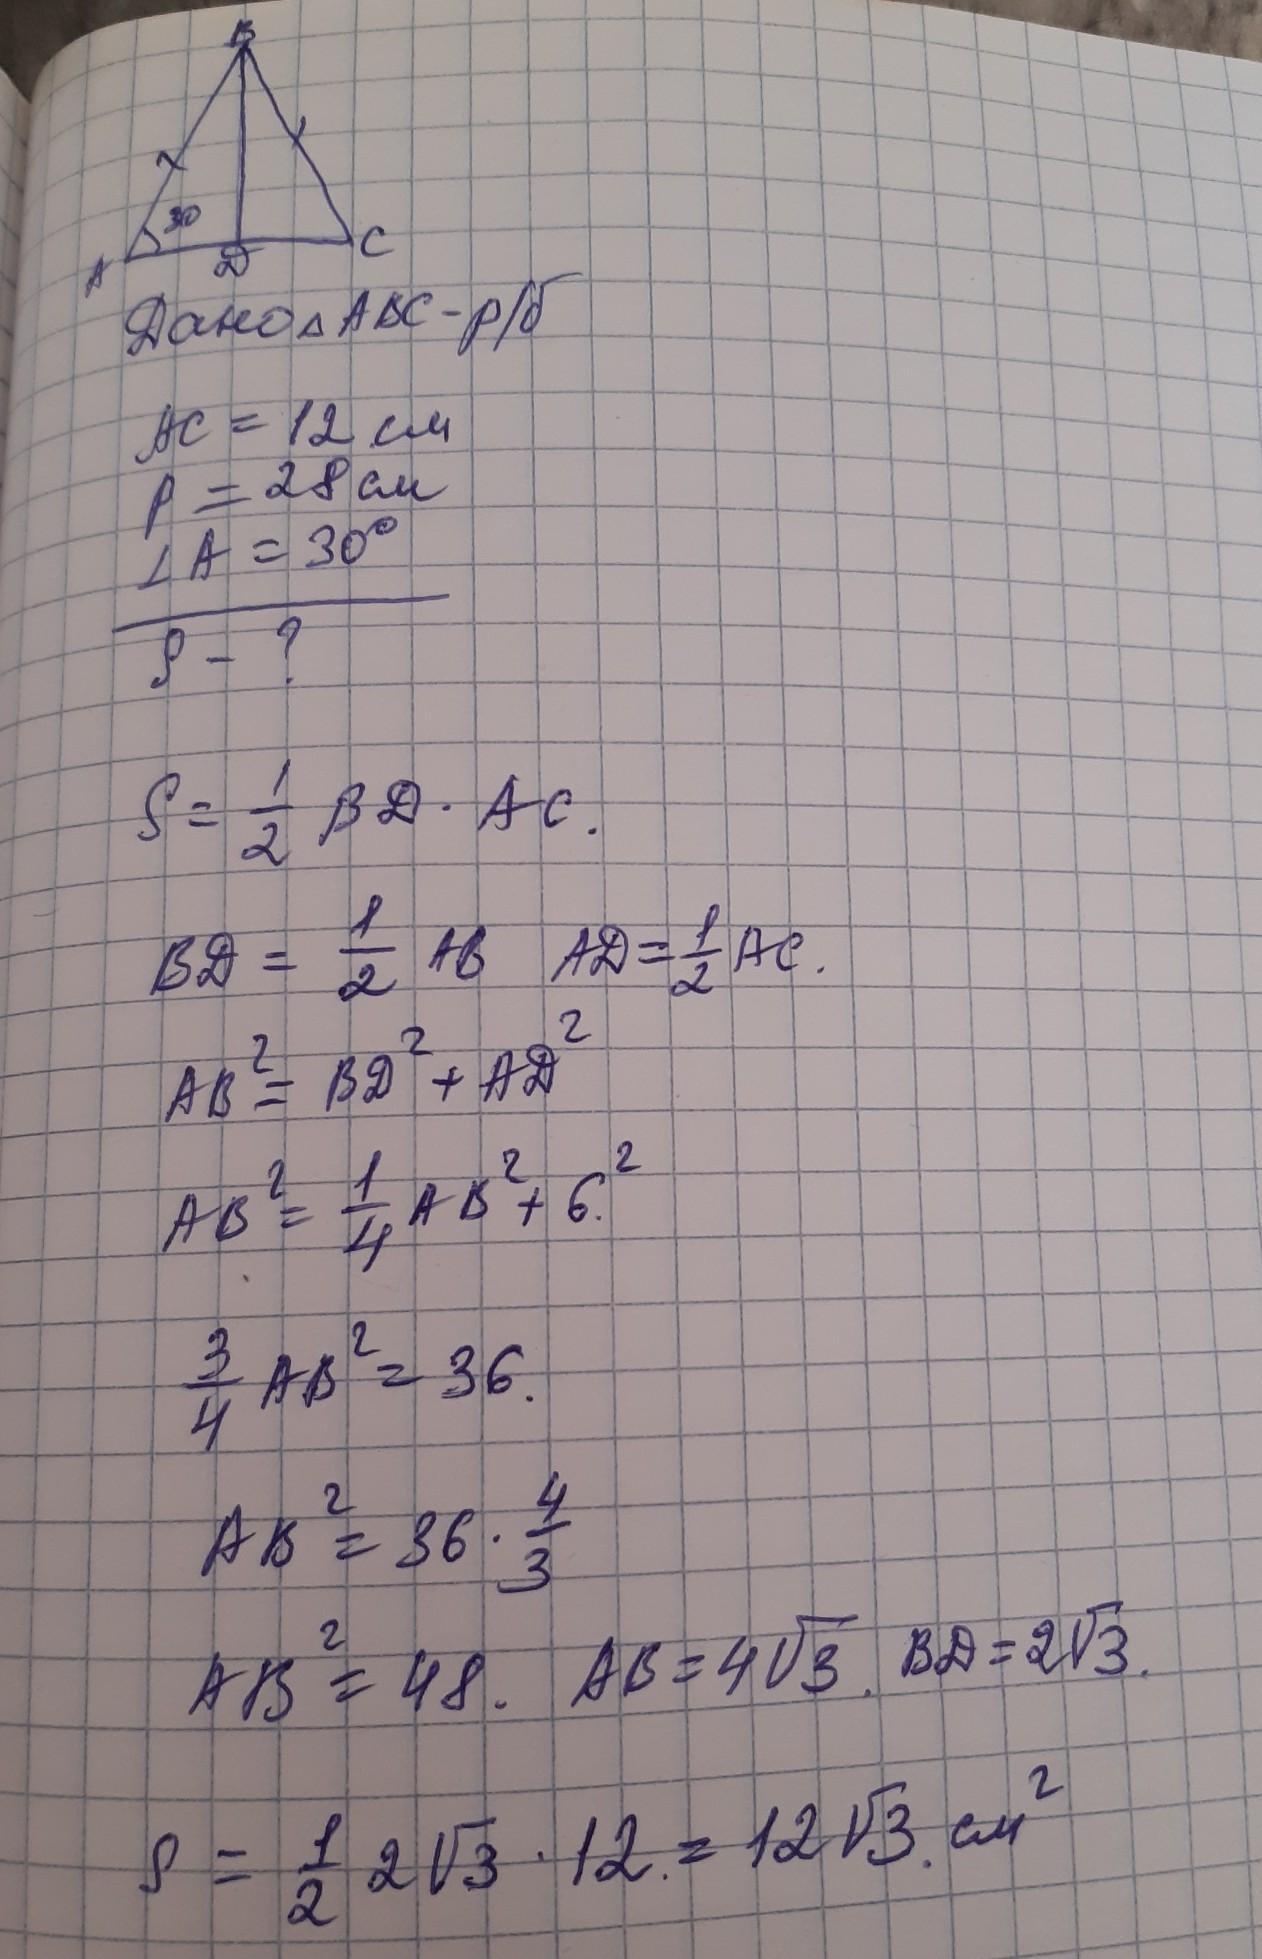 B
30
A D C
Дано △ABC - р/б
AC = 12 см
P = 28 см
∠A = 30°
S - ?
S = 1/2 BD · AC.
BD = 1/2 AB AD = 1/2 AC.
AB² = BD² + AD²
AB² = 1/4 AB² + 6².
3/4 AB² = 36.
AB² = 36 · 4/3
AB² = 48. AB = 4√3. BD = 2√3.
S = 1/2 2√3 · 12. = 12√3. см²